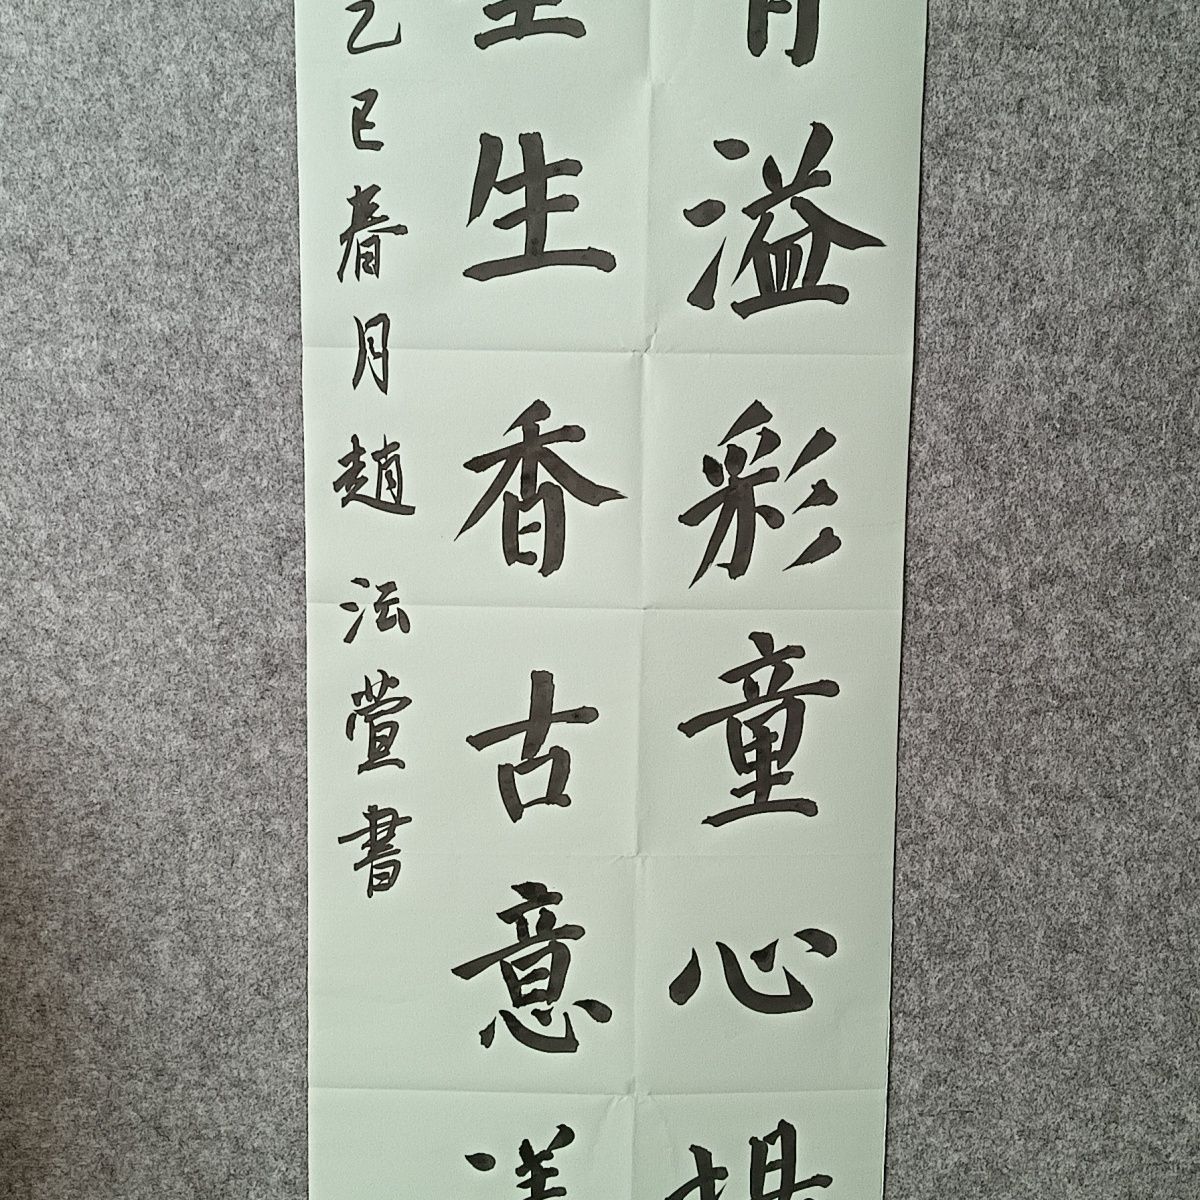 溢彩童心
生香古意
乙巳春月趙法萱書